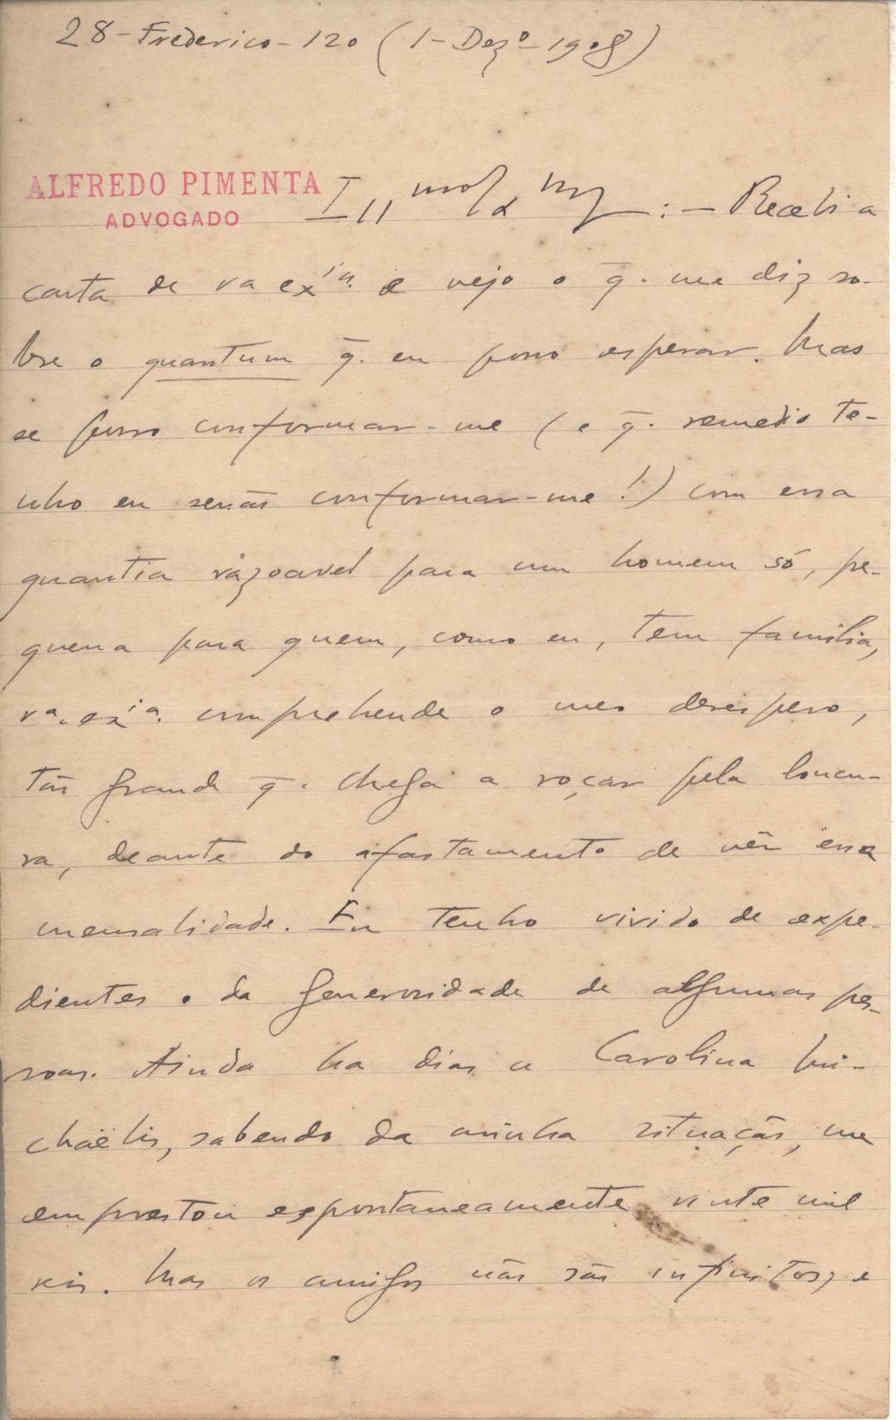 28 - Frederico - 120 (1 - Dezº - 1908)
ALFREDO PIMENTA
ADVOGADO
Ill : - Recebi a
carta de va exia. e vejo o q̄. me diz so-
bre o quantum q̄. eu posso esperar. Mas
se posso conformar-me (e q̄. remedio te-
nho eu senão conformar-me!) com essa
quantia rázoavel para um homem só, pe-
quena para quem, como eu, tem familia,
va. exia. comprehende o meu desespero,
tão grande q̄. chega a roçar pela loucu-
ra, deante do afastamento de vêr essa
mensalidade. Eu tenho vivido de expe-
dientes e da generosidade de algumas pes-
soas. Ainda ha dias a Carolina Mi-
chaëlis, sabendo da minha situação, me
emprestou espontaneamente vinte mil
reis. Mas os amigos não são infinitos, e